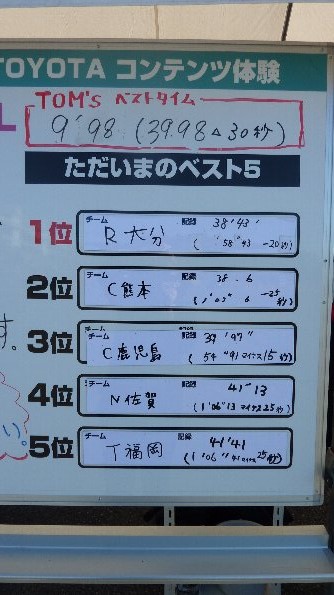 TOYOTA コンテンツ体験
TOM's ベストタイム
9"98 (39.98▲30秒)
ただいまのベスト5
1位 チーム R 大分 記録 38"43
(58"43 -20秒)
2位 チーム C 熊本 記録 38.6
(1'03" 6 -25秒)
3位 チーム C 鹿児島 記録 39"97"
(54"91 マイナス15秒)
す。
4位 チーム N 佐賀 記録 41"13
(1'06"13 マイナス25秒)
い。
5位 チーム T 福岡 記録 41"41
(1'06"41 マイナス25秒)